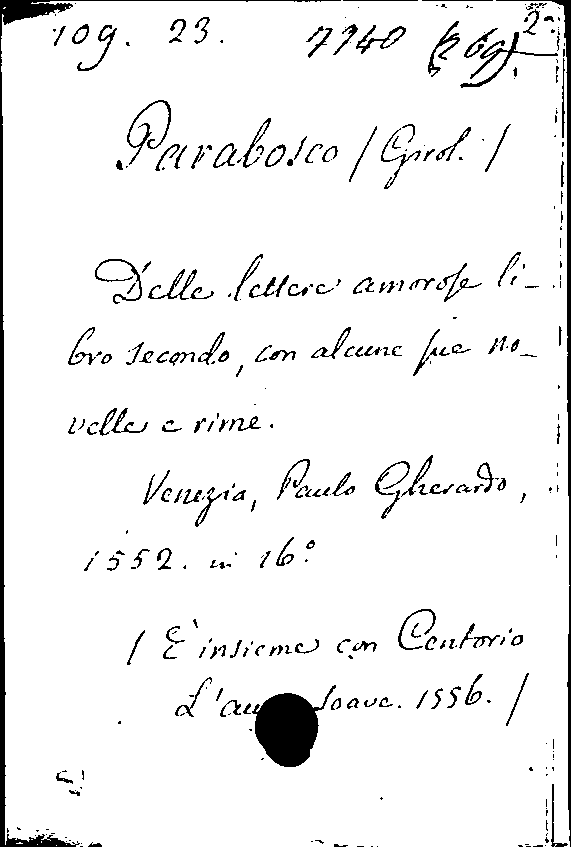 109. 23. 7740 (269). 2a
Parabosco / Girol. /
Delle lettere amorose li-
bro secondo, con alcune sue no-
velle e rime.
Venezia, Paulo Gherardo,
1552. in 16°
/ È insieme con Centorio
L'au soave. 1556. /